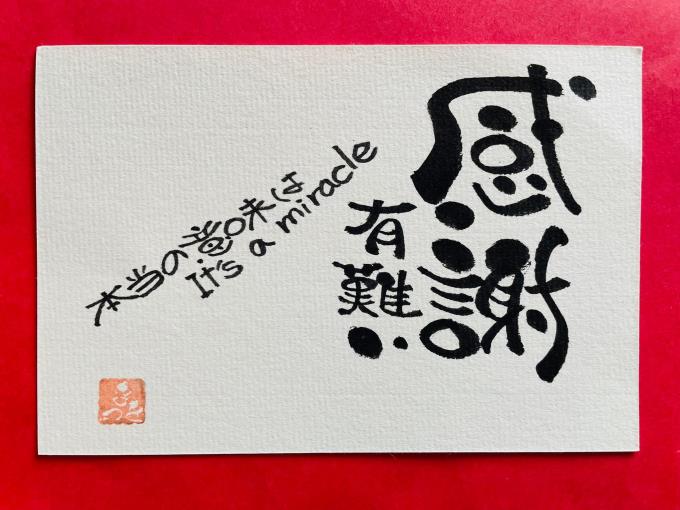 感謝
有難
本当の意味は
It's a miracle